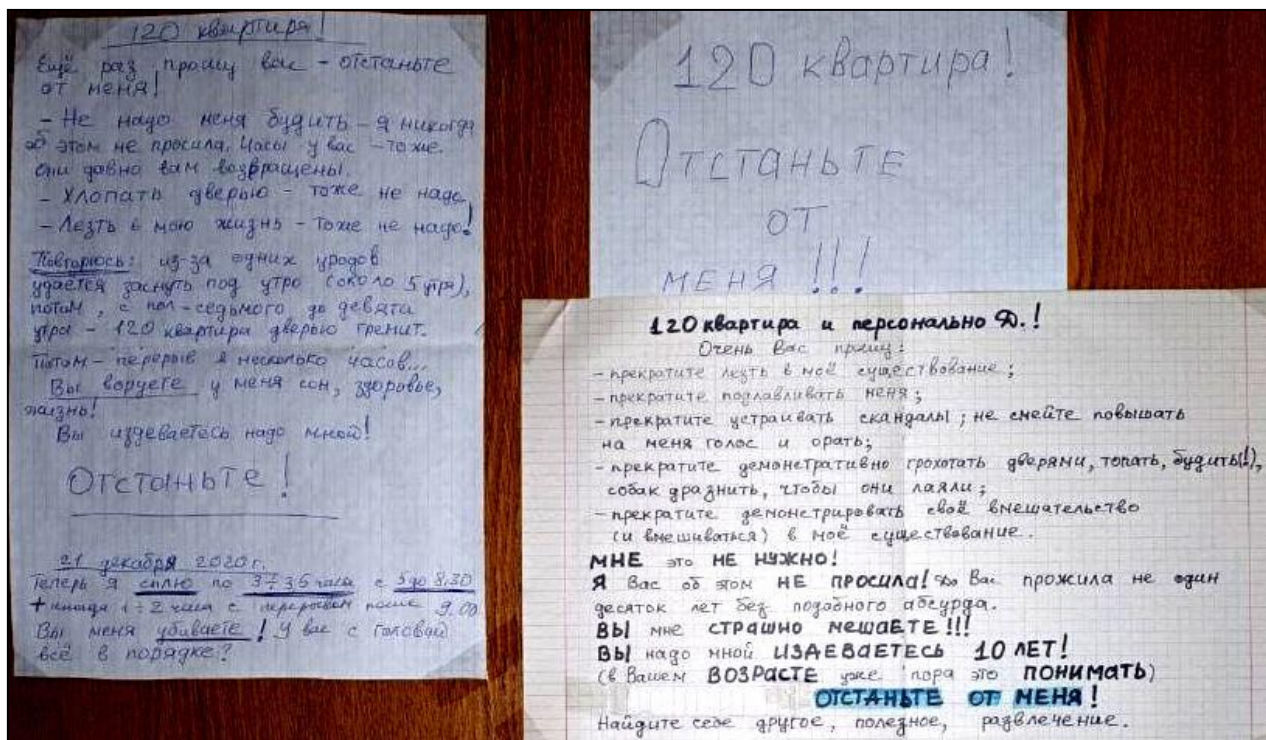 120 квартира!
Ещё раз прошу вас – отстаньте
от меня!
– Не надо меня будить – я никогда
об этом не просила. Часы у вас – тоже.
они давно вам возвращены.
– Хлопать дверью – тоже не надо
– Лезть в мою жизнь – тоже не надо!
Повторюсь: из-за одних уродов
удаётся заснуть под утро (около 5 утра),
потом, с пол-седьмого до девяти
утра – 120 квартира дверью гремит.
Потом – перерыв в несколько часов...
Вы воруете у меня сон, здоровье,
жизнь!
Вы издеваетесь надо мной!
Отстаньте!
21 декабря 2020 г.
Теперь я сплю по 3÷3,5 часа с 5 до 8.30
+ иногда 1÷2 часа с перерывом после 9.00
Вы меня убиваете! У вас с головой
всё в порядке?
120 квартира!
Отстаньте
от
меня!!!
120 квартира и персонально Д.!
Очень Вас прошу:
– прекратите лезть в моё существование;
– прекратите подлавливать меня;
– прекратите устраивать скандалы; не смейте повышать
на меня голос и орать;
– прекратите демонстративно грохотать дверями, топать, будить(!),
собак дразнить, чтобы они лаяли;
– прекратите демонстрировать своё вмешательство
(и вмешиваться) в моё существование.
МНЕ это НЕ НУЖНО!
Я Вас об этом НЕ ПРОСИЛА! До Вас прожила не один
десяток лет без подобного абсурда.
ВЫ мне СТРАШНО МЕШАЕТЕ!!!
ВЫ надо мной ИЗДЕВАЕТЕСЬ 10 ЛЕТ!
(в Вашем ВОЗРАСТЕ уже пора это ПОНИМАТЬ)
ОТСТАНЬТЕ ОТ МЕНЯ!
Найдите себе другое, полезное, развлечение.